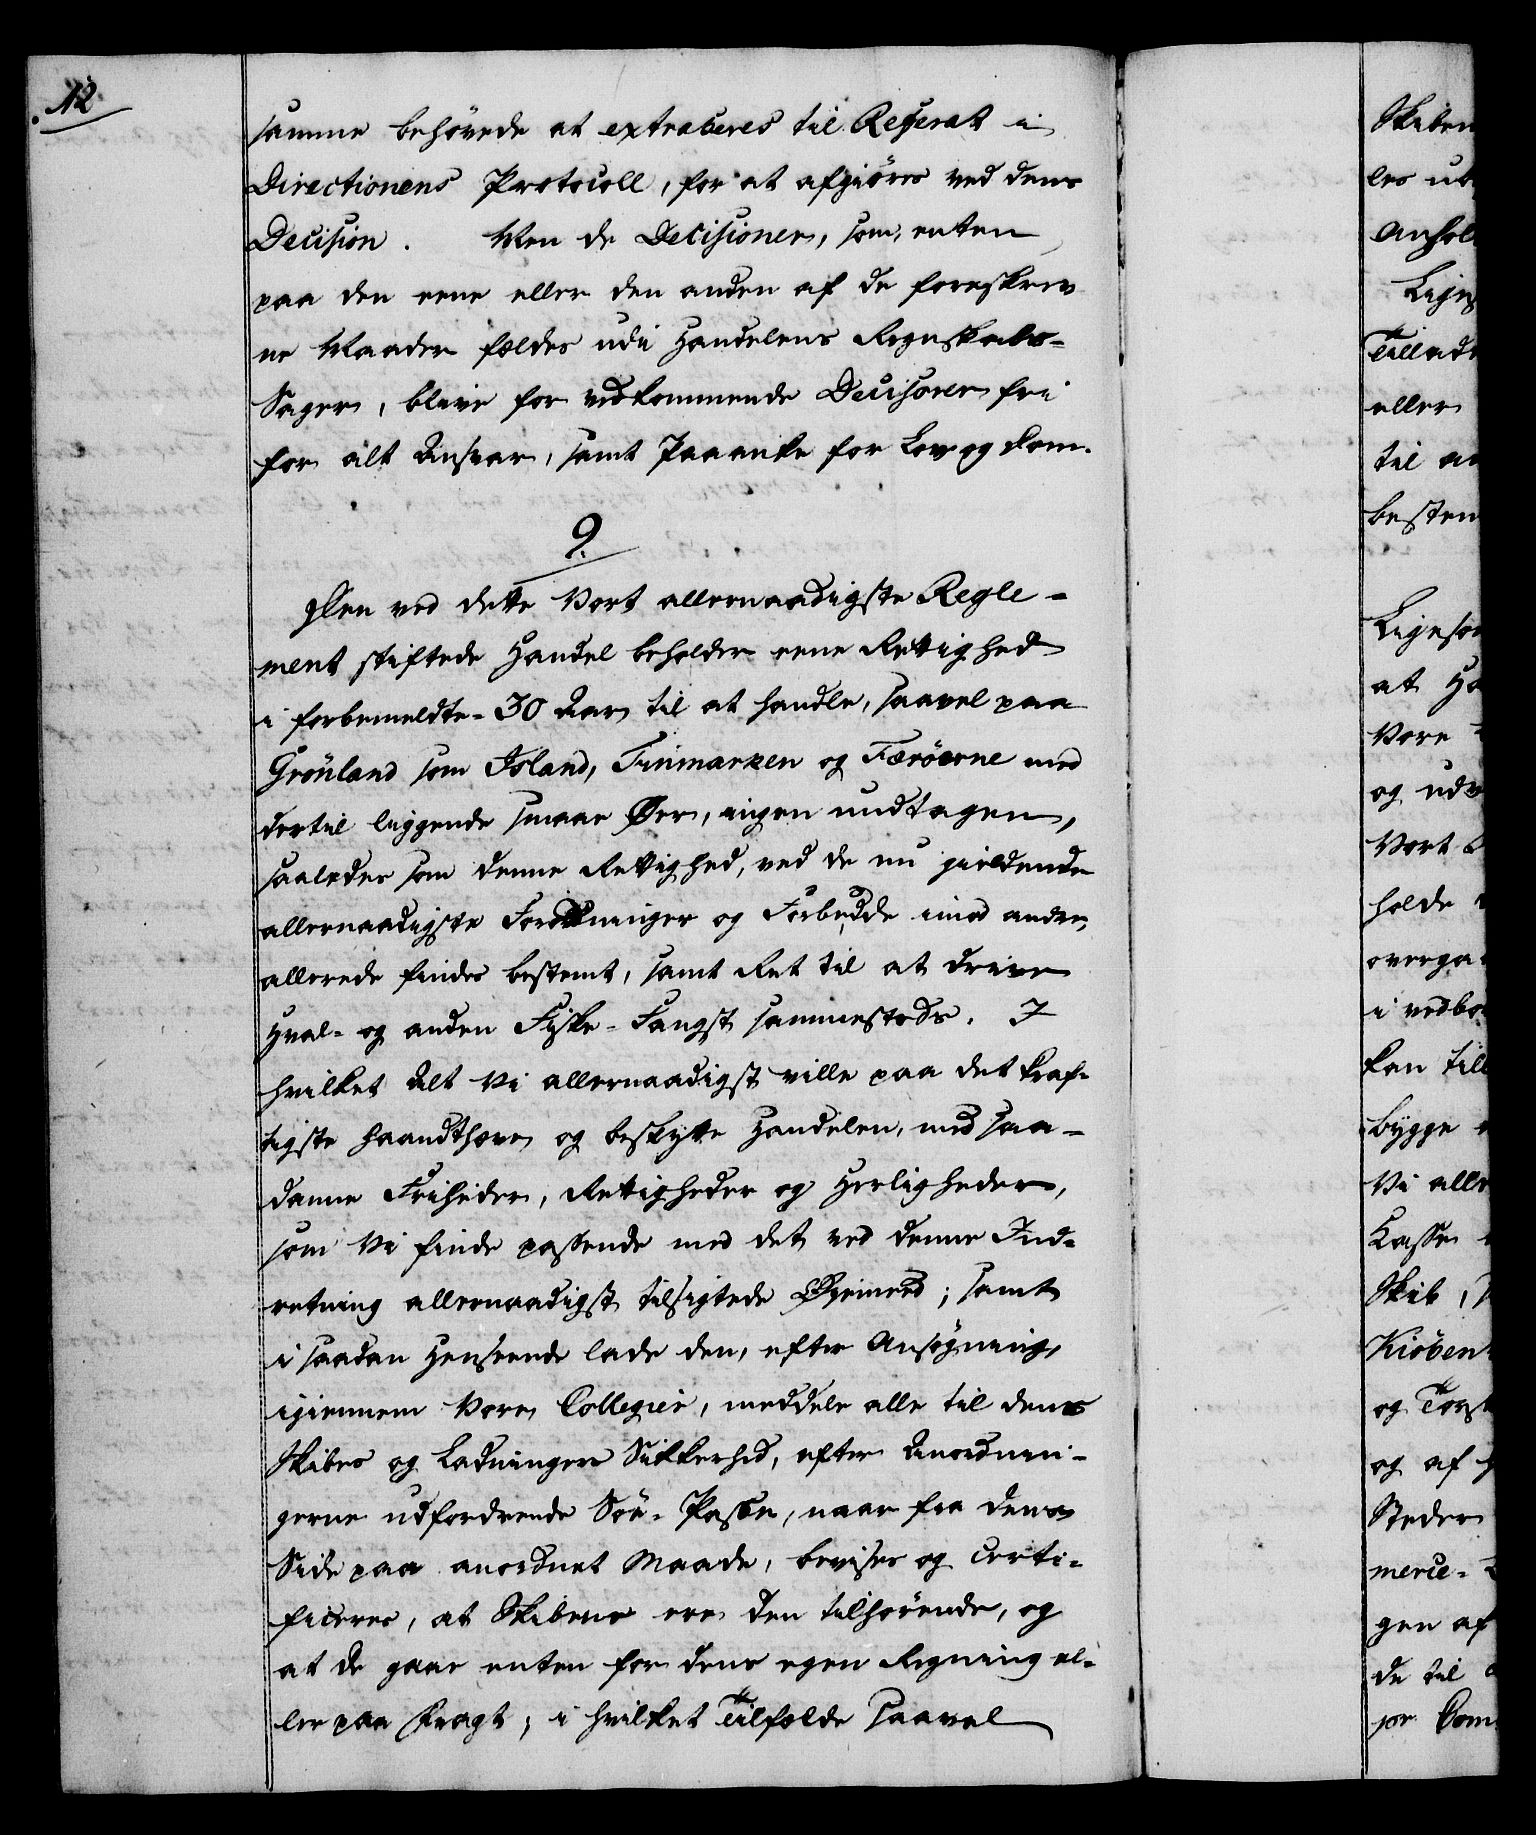 12.
samme behövede at extraheres til Referat i
Directionens Protocoll, for at afgiöres ved dens
Decision. Men de Decisioner, som, enten
paa den eene eller den anden af de foreskrev
ne Maader fældes udi Handelens Regnskabs-
Sager, blive for vedkommende Decisorer fri
for alt Ansvar, samt Paaanke for Lov og Dom.
9.
Den ved dette Vort allernaadigste Regle-
ment stiftede Handel beholder eene Rettighed
i forbemeldte 30 Aar til at handle, saavel paa
Grönland som Island, Finmarken og Færöerne med
dertil liggende smaae Øer, ingen undtagen,
saaledes som denne Rettighed, ved de nu gieldende
allernaadigste Forordninger og Forbudde imod andre,
allerede findes bestemt, samt Ret til at drive
Hval- og anden Fiske-Fangst sammesteds. I
hvilket Alt Vi allernaadigst ville paa det kraf-
tigste haandthæve og beskytte Handelen, med saa-
danne Friheder, Rettigheder og Herligheder,
som Vi finde passende med det ved denne Ind-
retning allernaadigst tilsigtede Øyemeed; samt
i saadan Henseende lade den, efter Ansøgning,
igiennem Vore Collegier, meddele alle til dens
Skibes og Ladningers Sikkerhed, efter Anordnin-
gerne udfordrende Söe-Passe, naar fra dens
Side paa anordnet Maade, bevises og certi-
ficeres, at Skibene ere den tilhörende, og
at de gaae enten for dens egen Regning el-
ler paa Fragt; i hvilket Tilfælde saavel
Skiben
les
Anhol
Tillad
eller
til
bestem
at
Vore
og
Vort
holde
i
kan
bygge
Vi
Casse
Skib,
Kiöben
og
og af
Steder
merce-
gen af
de til
Com